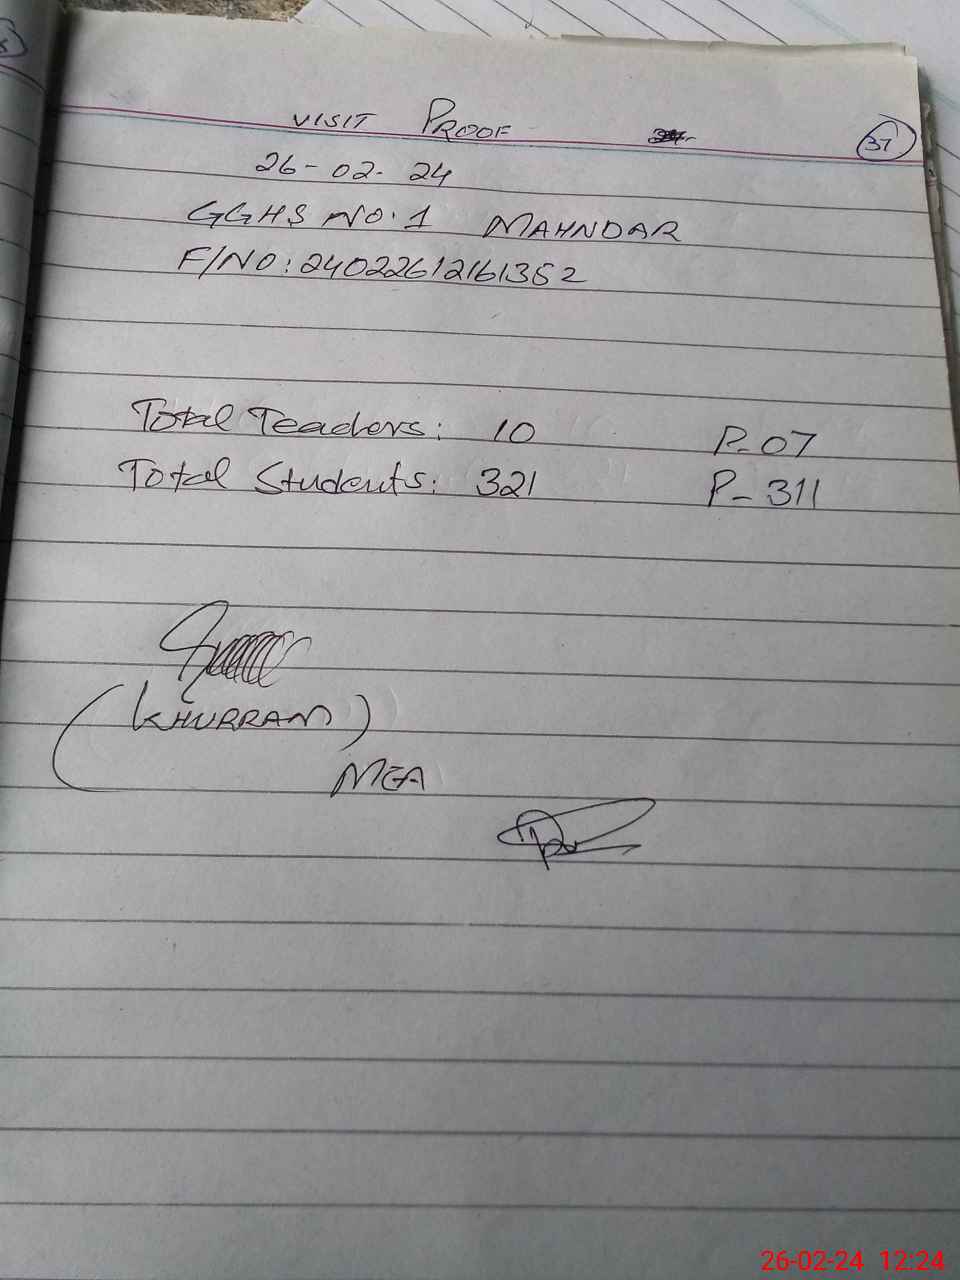 VISIT PROOF
37
26-02-24
GGHS NO.1 MAHNDAR
F/NO: 24022612161352
Total Teachers: 10 P-07
Total Students: 321 P-311
(KHURRAM)
MEA
26-02-24 12:24